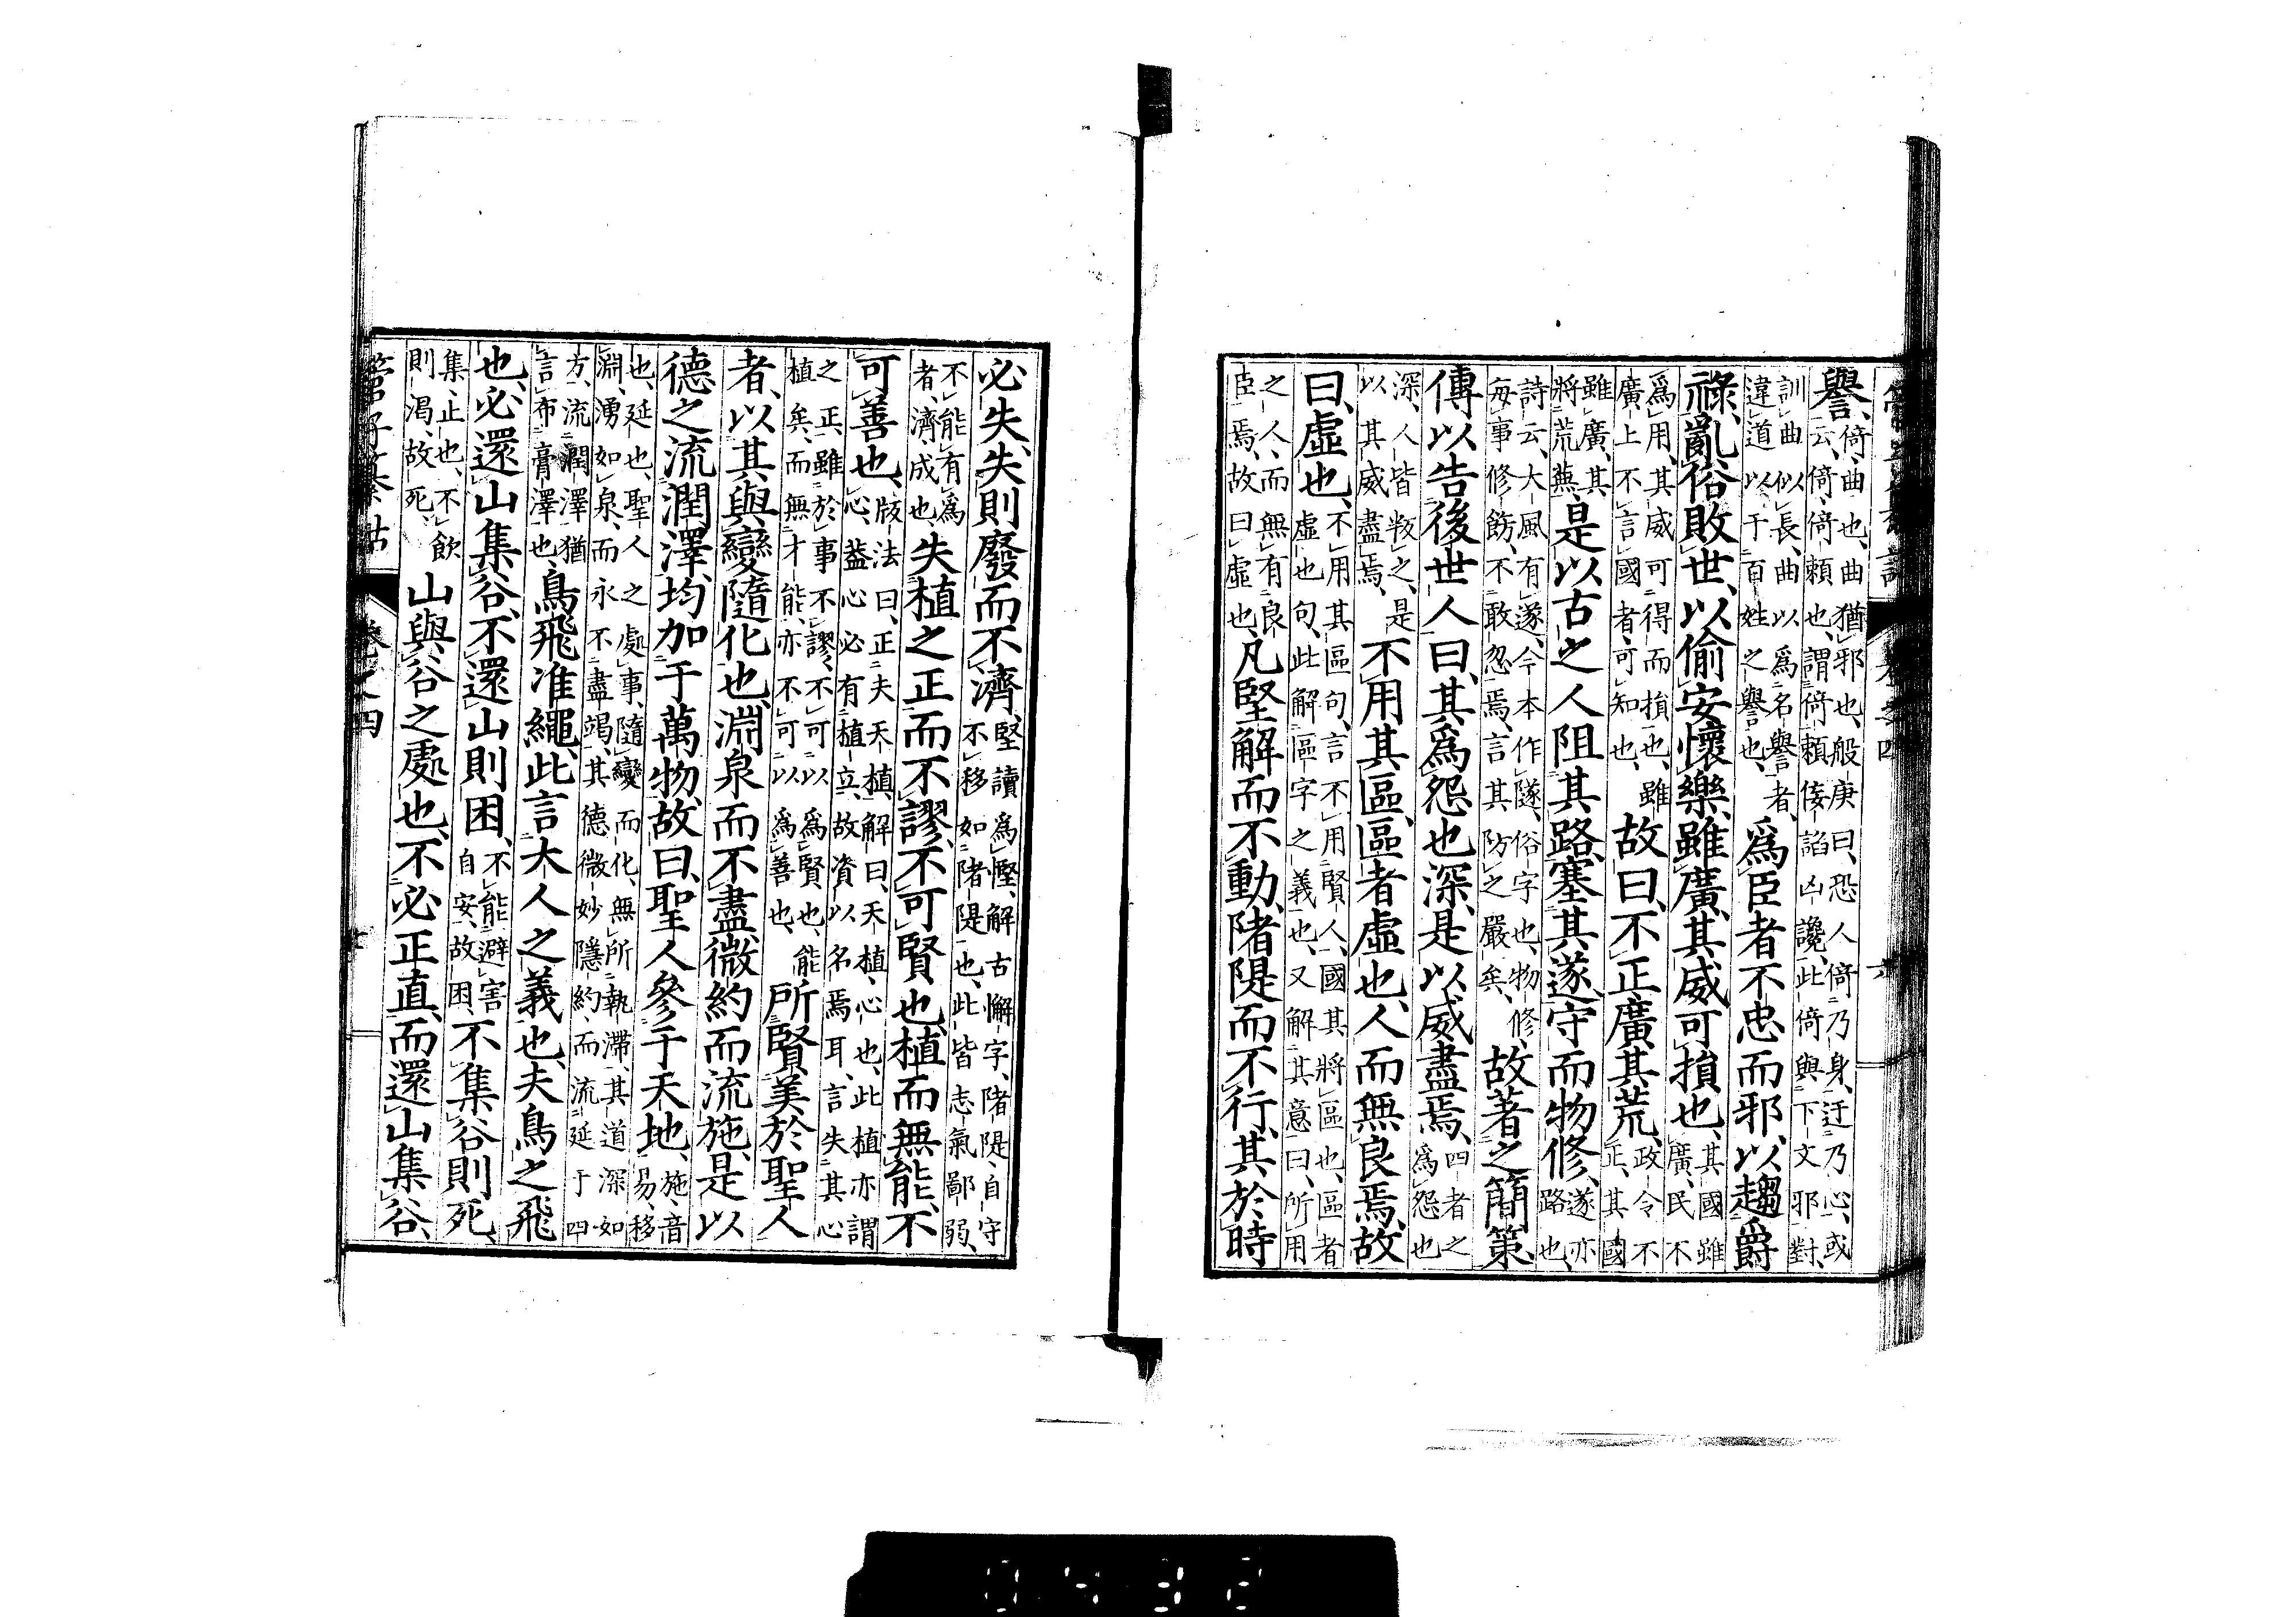 譽、倚、曲也、曲猶邪也、般庚曰、恐人倚乃身、迂乃心、或云、倚、倚賴也、謂倚賴佞諂凶讒、此倚與下文邪對、
訓曲似長、曲以爲名譽者、違道以于百姓之譽也、爲臣者不忠而邪、以趨爵
祿、亂俗敗世、以偷安懷樂、雖廣其威可損也、其國雖廣、民不
爲用、其威可得而損也、雖廣上不言國者、可知也、故曰、不正廣其荒、政令不正、其國
雖廣、其將荒蕪、是以古之人阻其路、塞其遂、守而物修、遂亦路也、
詩云、大風有遂、今本作隧、俗字也、物修、每事修飭、不敢忽焉、言其防之嚴矣、故著之簡策、
傳以告後世人曰、其爲怨也深、是以威盡焉、四者之爲怨也
深、人皆叛之、是以其威盡焉、不用其區、區者虛也、人而無良焉、故
曰、虛也、不用其區句、言不用賢人、國其將區也、區者虛也句、此解區字之義也、又解其意曰、所用
之人、而無有良臣焉、故曰虛也、凡堅解而不動、陼隄而不行、其於時
必失、失則廢而不濟、堅讀爲慳、解古懈字、陼隄、自守不移如陼隄也、此皆志氣鄙弱、
不能有爲者、濟成也、失植之正而不謬、不可賢也、植而無能、不
可善也、版法曰、正夫天植、解曰、天植、心也、此植亦謂心、蓋心必有植立、故資以名焉耳、言失其心
之正、雖於事不謬、不可以爲賢也、能植矣、而無才能、亦不可以爲善也、所賢美於聖人
者、以其與變隨化也、淵泉而不盡、微約而流施、是以
德之流潤澤、均加于萬物、故曰、聖人參于天地、施、音易、移
也、延也、聖人之處事、隨變而化、無所執滯、其道深如淵、湧如泉、而永不盡竭、其德微妙隱約、而流延于四
方、流潤澤猶言布膏澤也、鳥飛准繩、此言大人之義也、夫鳥之飛
也、必還山集谷、不還山則困、不能避害自安、故困、不集谷則死、
集、止也、不飲則渴、故死、山與谷之處也、不必正直、而還山集谷、
管子纂詁 卷之四